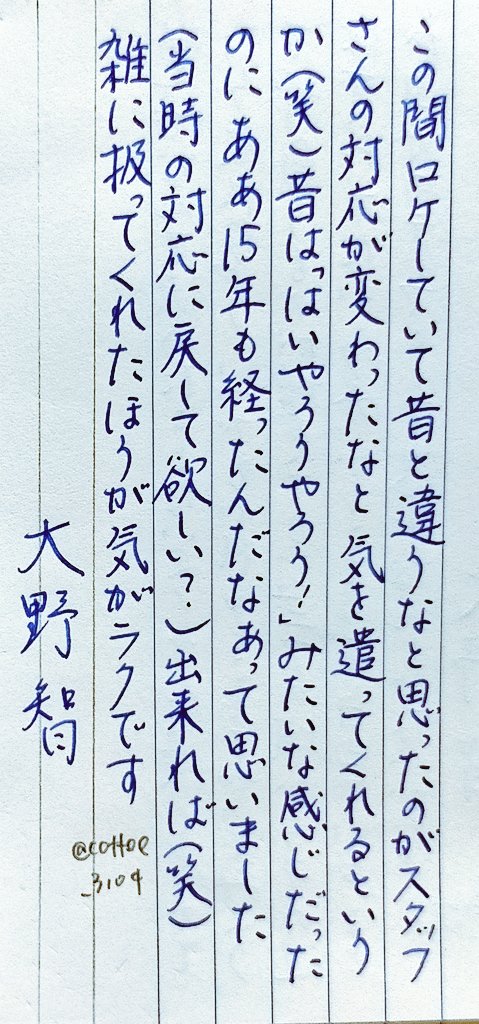 この間ロケしていて昔と違うなと思ったのがスタッフ
さんの対応が変わったなと 気を遣ってくれるという
か(笑)昔は「はいやろうやろう!」みたいな感じだった
のに ああ15年も経ったんだなあって思いました
(当時の対応に戻して欲しい?)出来れば(笑)
雑に扱ってくれたほうが気がラクです
大野智
@coffee
_3104